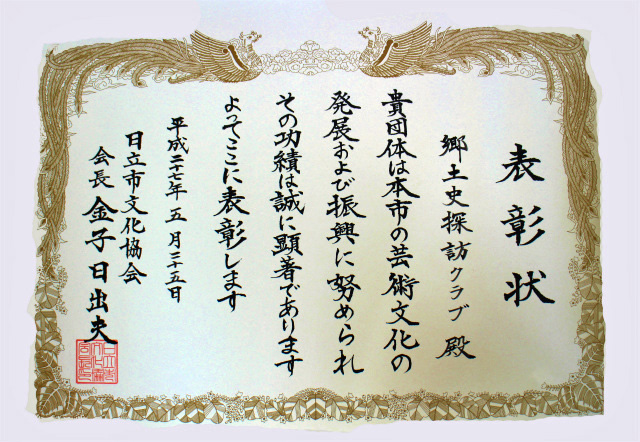 表彰状
郷土史探訪クラブ 殿
貴団体は本市の芸術文化の
発展および振興に努められ
その功績は誠に顕著であります
よってここに表彰します
平成二十七年五月二十五日
日立市文化協会
会長 金子日出夫